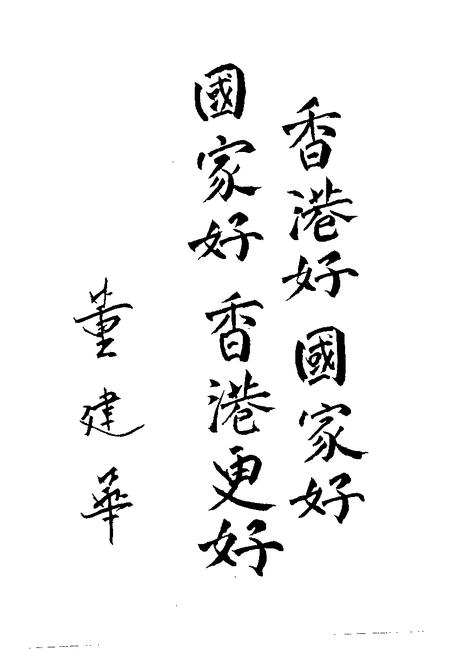 香港好 國家好
國家好 香港更好
董建華